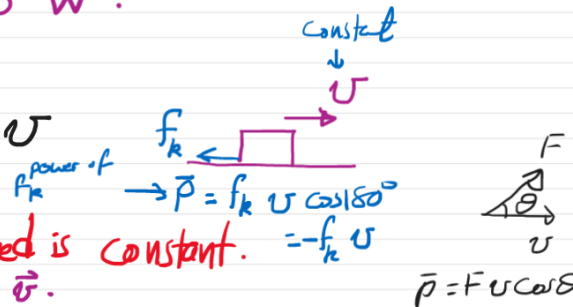 W.
constat
↓
v
v
f_k
power of
f_k → P̄ = f_k v cos180°
ed is constant. = -f_k v
v⃗.
F
θ
v
p̄ = F v cosθ